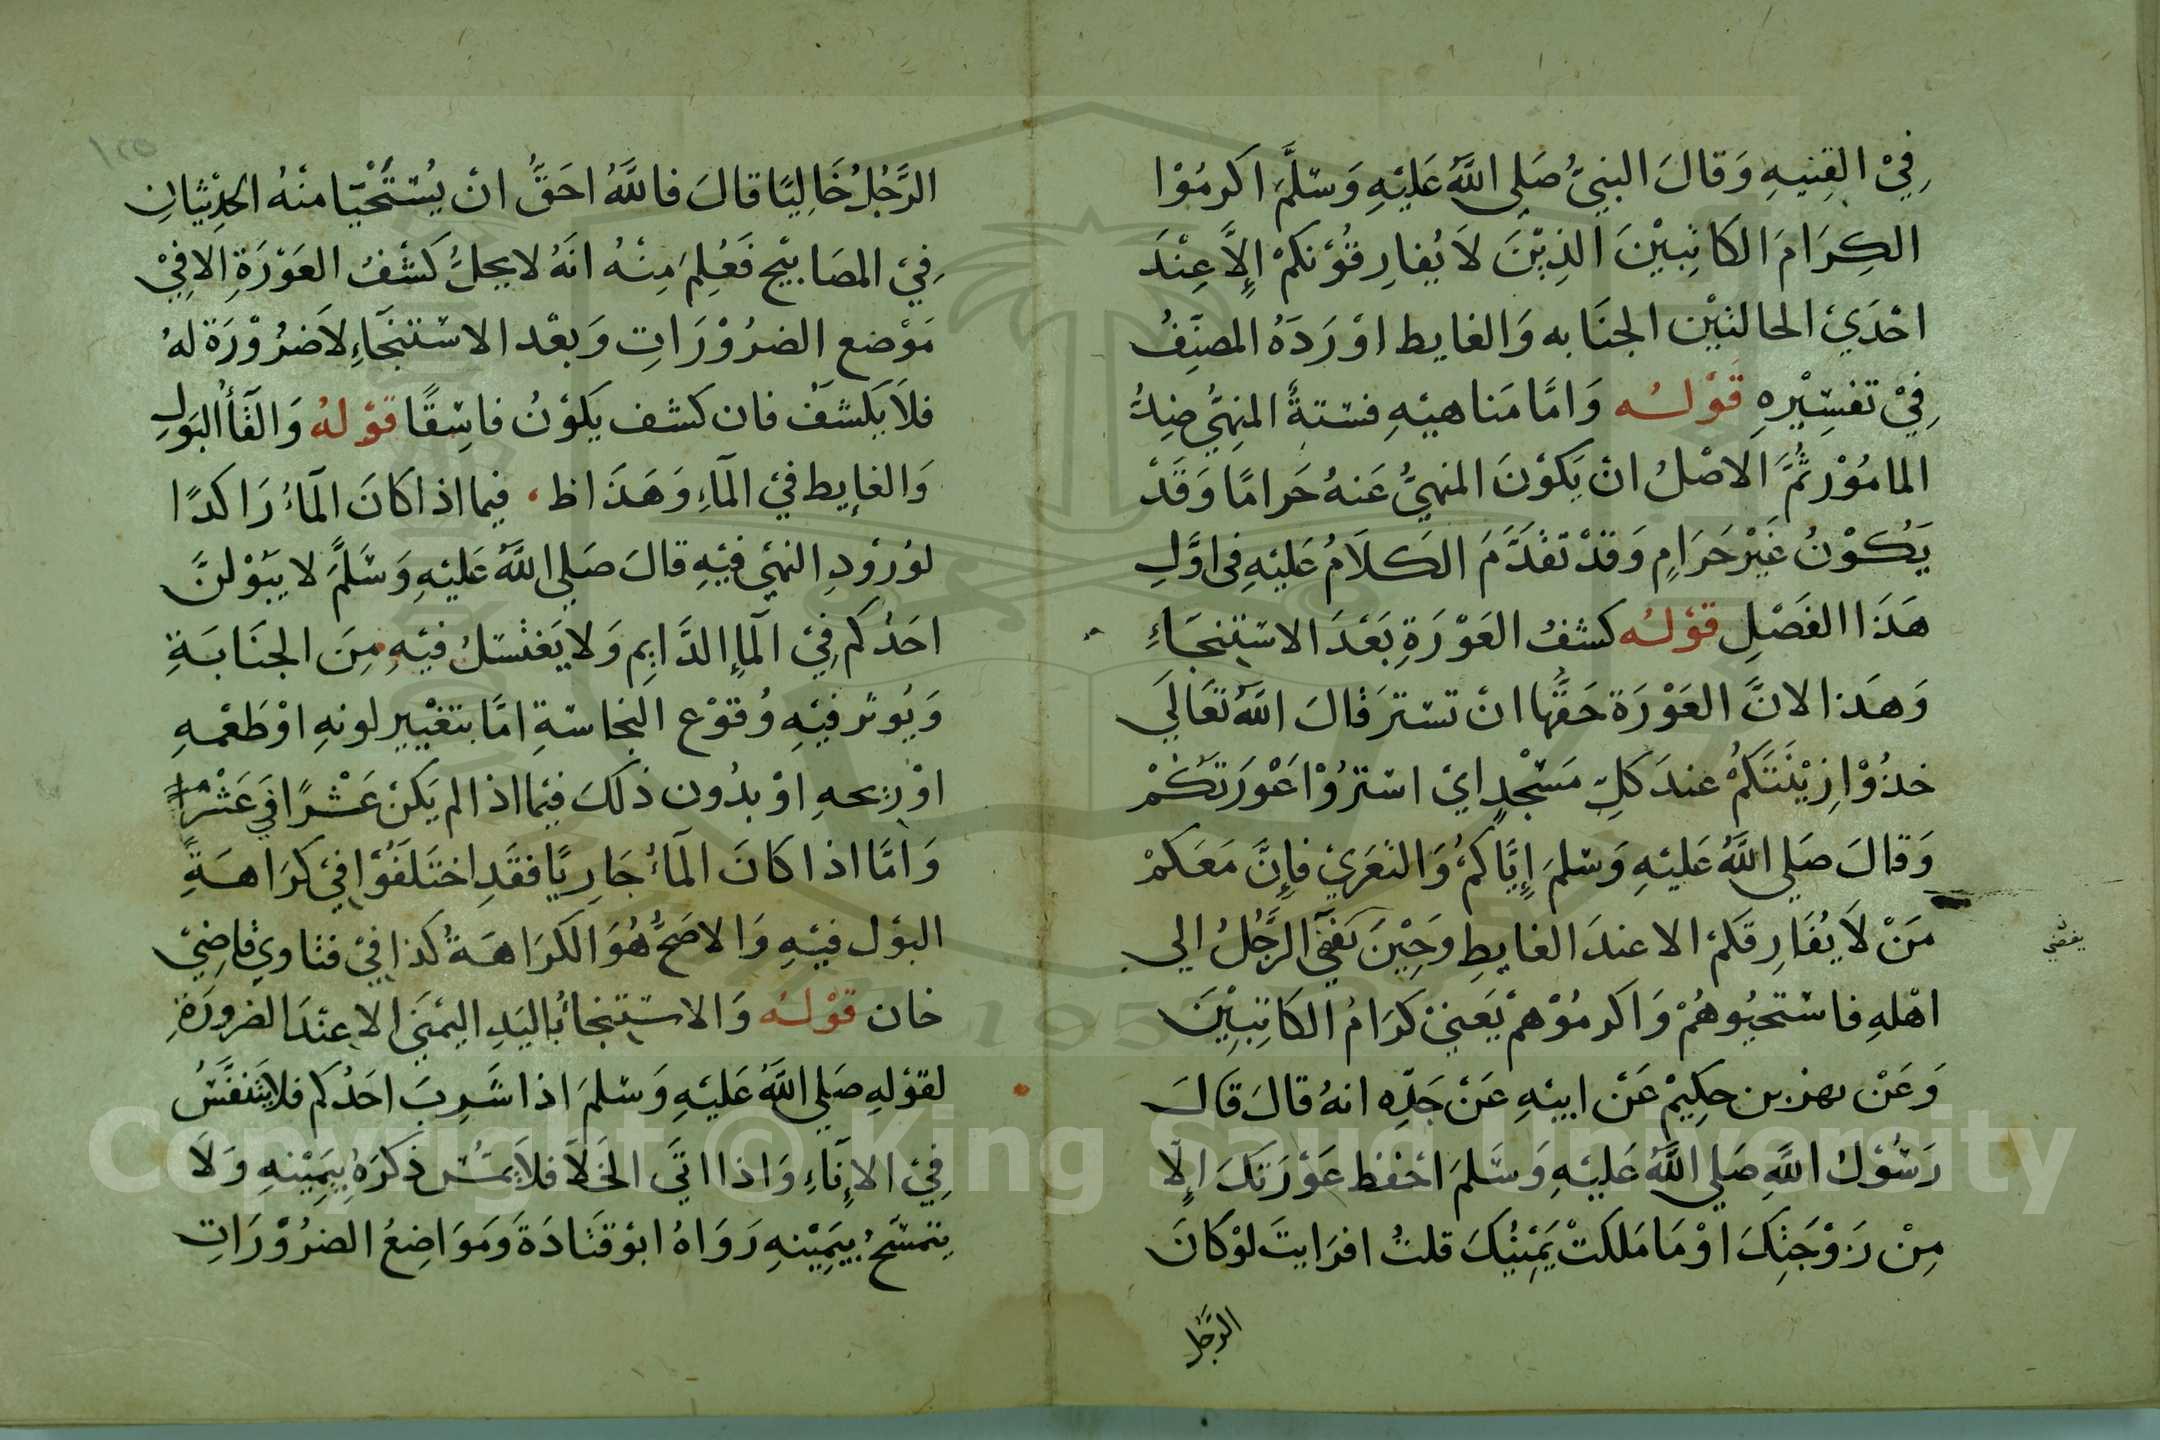 فِيْ القِنيهِ وَقالَ النبيُّ صَلي اللَّهُ عَليْهِ وَسَلَّمَ اكرمُوْا
الكِرَامَ الكَاتِبيْنَ الذِيْنَ لاَ يُفارِقُوْنكمْ إِلاَّ عِنْدَ
احْدَيْ الحالتيْن الجنَابه وَالغايط اوْرَدَهُ المصنِفُ
فِيْ تفسِيْرِهِ قوْلـُه وَامَّا مَناهيْهِ فستةٌ المنهِيُّ ضِدُّ
المامُوْر ثُمَّ الاَصْلُ انْ يَكوْنَ المنهيُّ عَنهُ حَرامًا وَقَدْ
يَكُوْنُ غَيْرَ حَرَامٍ وَقَدْ تقدَّمَ الكَلاَمُ عَليْهِ فى اوَّلِ
هَذَا الفَصْلِ قوْلـُه كشفُ العَوْرَةِ بَعْدَ الاستنجَاءِ
وَهَذا لانَّ العَوْرَةَ حَقَّها انْ تسترَ قالَ اللَّهُ تعَالَي
خذُوْا زِيْنَتَكمْ عندَ كلِّ مَسْجْدٍ ايْ استرُوْا عَوْرَتكُمْ
وَقالَ صَلي اللَّهُ عَليْهِ وَسْلمَ إِيَّاكمُ وَالتعَرِيْ فإِنَّ مَعَكمْ
مَنْ لاَ يُفَارِقكمْ الا عندَ الغايطِ وَحِيْنَ يَفضَي الرَّجُلُ الي
يفضي
اهْلهِ فاستحيُوهُمْ وَاكرمُوْهمْ يَعنيْ كرَامُ الكَاتِبِيْنَ
وَعَنْ بهز بن حكِيمْ عَنْ ابيْهِ عَنْ جَدِّه انهُ قالَ قَالَ
رَسُوْلُ اللَّهِ صَلي اللَّهُ عَليْهِ وَسَّلمَ احْفظ عَوْرَتكَ إِلَّا
مِنْ زَوْجَتِكَ اوْ مَا مَلكتْ يَمِيْنُكَ قلتُ افرَايتَ لوْ كانَ
الرَّجُل
١٢٥
الرَّجُلُ خَالِيًا قالَ فاللَّهُ احَقُّ انْ يُسْتَحْيَا منْهُ الحَدِيْثانِ
فِيْ المصَابيْح فَعُلِمَ مِنْهُ انَهُ لا يحلُّ كَشْفُ العَوْرَةِ الا فِيْ
مَوْضع الضرُوْرَاتِ وَبعْد الاستنجَاءِ لاَ ضَرُوْرَةَ لهُ
فلاَ يَكشفْ فان كشف يَكوْنُ فاسِقًا قوْلهُ وَالقَأُ البَولِ
وَالغايط فيْ المآءِ وَهَذَا ظ فيما اذا كَانَ المَآءُ رَاكدًا
لوُرُوْدِ النهي فيْهِ قالَ صَلي اللَّهُ عَليْهِ وَسَلَّمَ لا يبَوْلنَّ
احَدُكم فِيْ المآءِ الدَّايِم وَلا يَغتسلُ فيْهِ مِنَ الجنَابَةِ
وَيُوثرُ فيْهِ وُقوْع النجاسَةِ امَّا بتغْييرِ لونهِ اوْ طَعْمهِ
اوْ رِيحهِ اوْ بدُون ذلكَ فيْما اذا لم يَكنْ عَشْرًا فَي عَشْرًا
وَامَّا اذا كانَ المَآءُ جَارِيًا فقَدِ اختَلَفُوْا فيْ كرَاهَةِ
البوْل فيْهِ وَالاصَحُّ هُوَ الكَرَاهَةُ كذا فيْ فتاوي قاضِيْ
خان قوْلهُ وَالاستنجاءُ باليَدِ اليمْنَي الا عنْدَ الضرورَةِ
لقوْلهِ صَلي اللَّهُ عَليْهِ وَسْلمَ اذا شَرِبَ احَدُكم فلا يَتنفَّسُ
فِيْ الإِنآءِ وَاذا اتَي الخَلآَ فلا يَمسُّ ذكرَهُ بِيَمِيْنهِ وَلاَ
يتمسَّحُ بيَمِيْنهِ رَوَاهُ ابوْ قتَادَةَ وَمَوَاضِعُ الضرُوْرَاتِ
Copyright © King Saud University